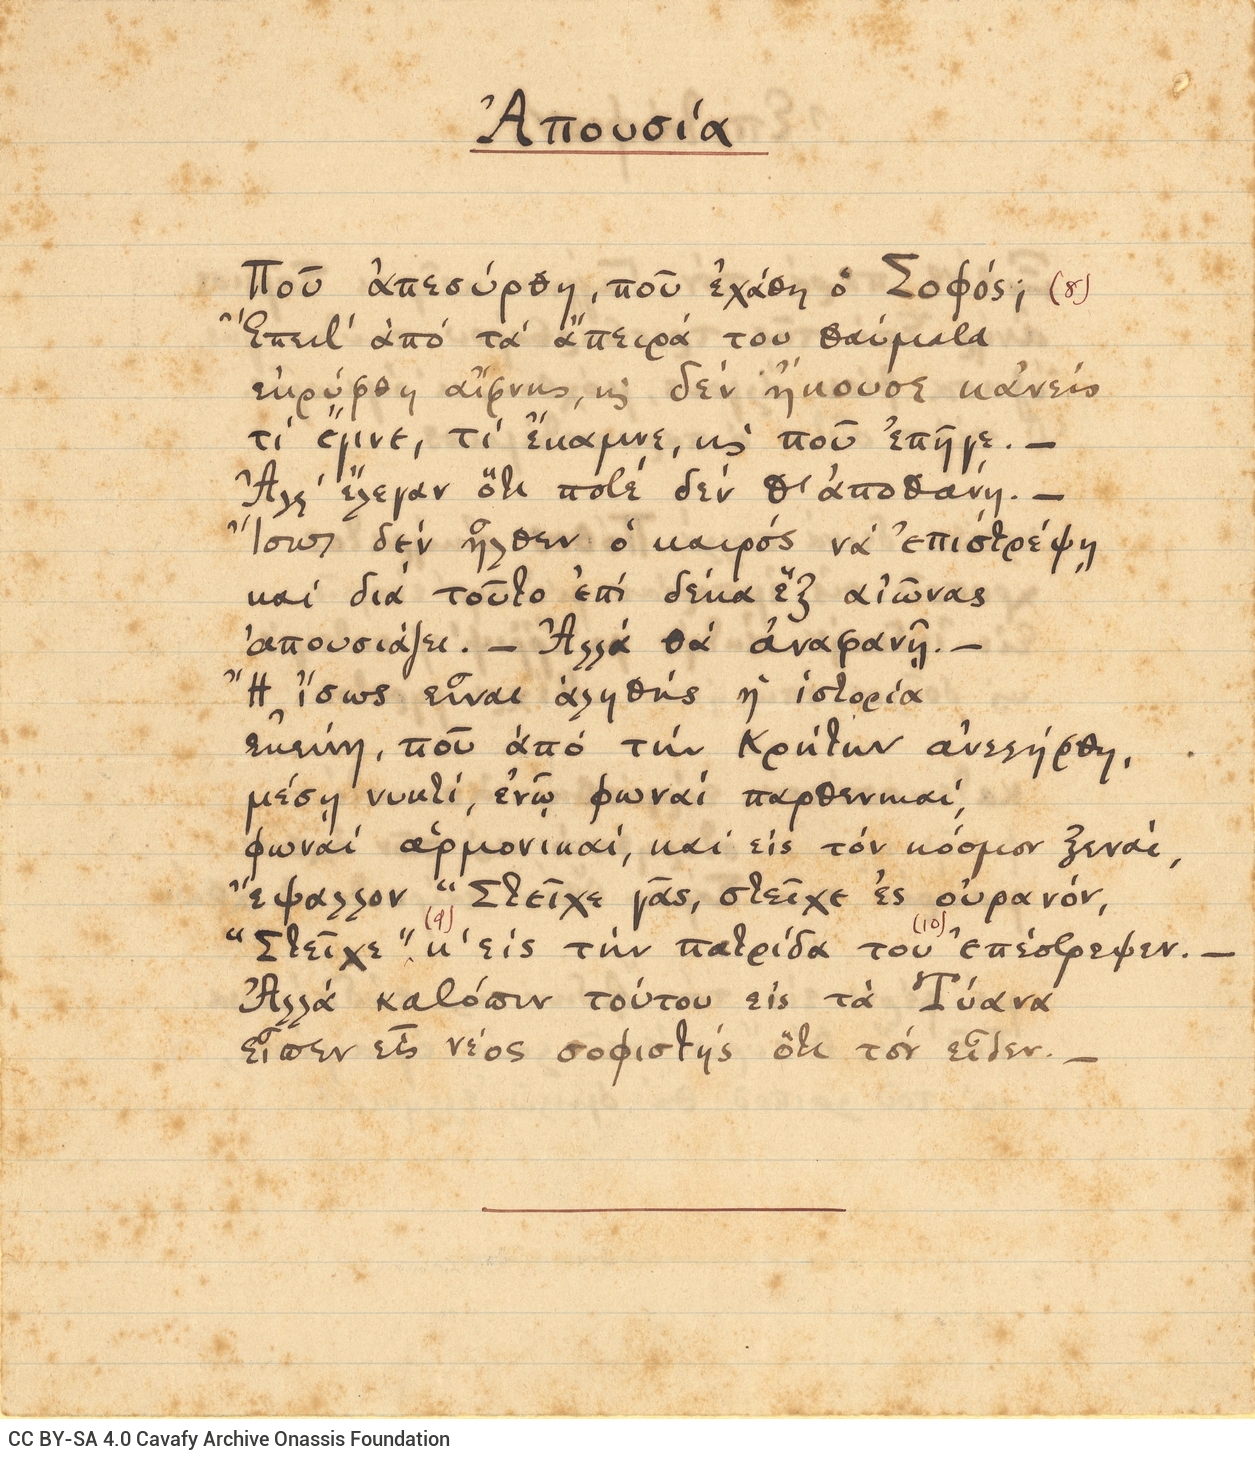 Ἀπουσία
Ποῦ ἀπεσύρθη, ποῦ ἐχάθη ὁ Σοφός; (8)
Ἔπειτ' ἀπό τά ἄπειρά του θαύματα
ἐκρύφθη αἴφνης, κ̣ δέν ἤκουσε κἀνείς
τί ἔγινε, τί ἔκαμνε, κ̣ ποῦ ἐπῆγε. —
Ἀλλ' ἔλεγαν ὅτι ποτέ δέν θ' ἀποθάνῃ. —
Ἴσως δέν ἦλθεν ὁ καιρός νά ἐπιστρέψῃ
καί διά τοῦτο ἐπί δέκα ἕξ αἰῶνας
ἀπουσιάζει. — Ἀλλά θά ἀναφανῇ. —
Ἤ ἴσως εἶναι ἀληθής ἡ ἱστορία
ἐκείνη, ποῦ ἀπό τήν Κρήτην ἀνελήφθη,
μέσῃ νυκτί, ἐνῷ φωναί παρθενικαί,
φωναί ἁρμονικαί, καί εἰς τόν κόσμον ξεναί,
ἔψαλλον "Στεῖχε γᾶς, στεῖχε ἐς οὐρανόν,
"Στεῖχε" (9) κ' εἰς τήν πατρίδα του (10) ἐπέστρεψεν. —
Ἀλλά κατόπιν τούτου εἰς τά Τύανα
εἶπεν εἷς νέος σοφιστής ὅτι τόν εἶδεν. —
CC BY-SA 4.0 Cavafy Archive Onassis Foundation